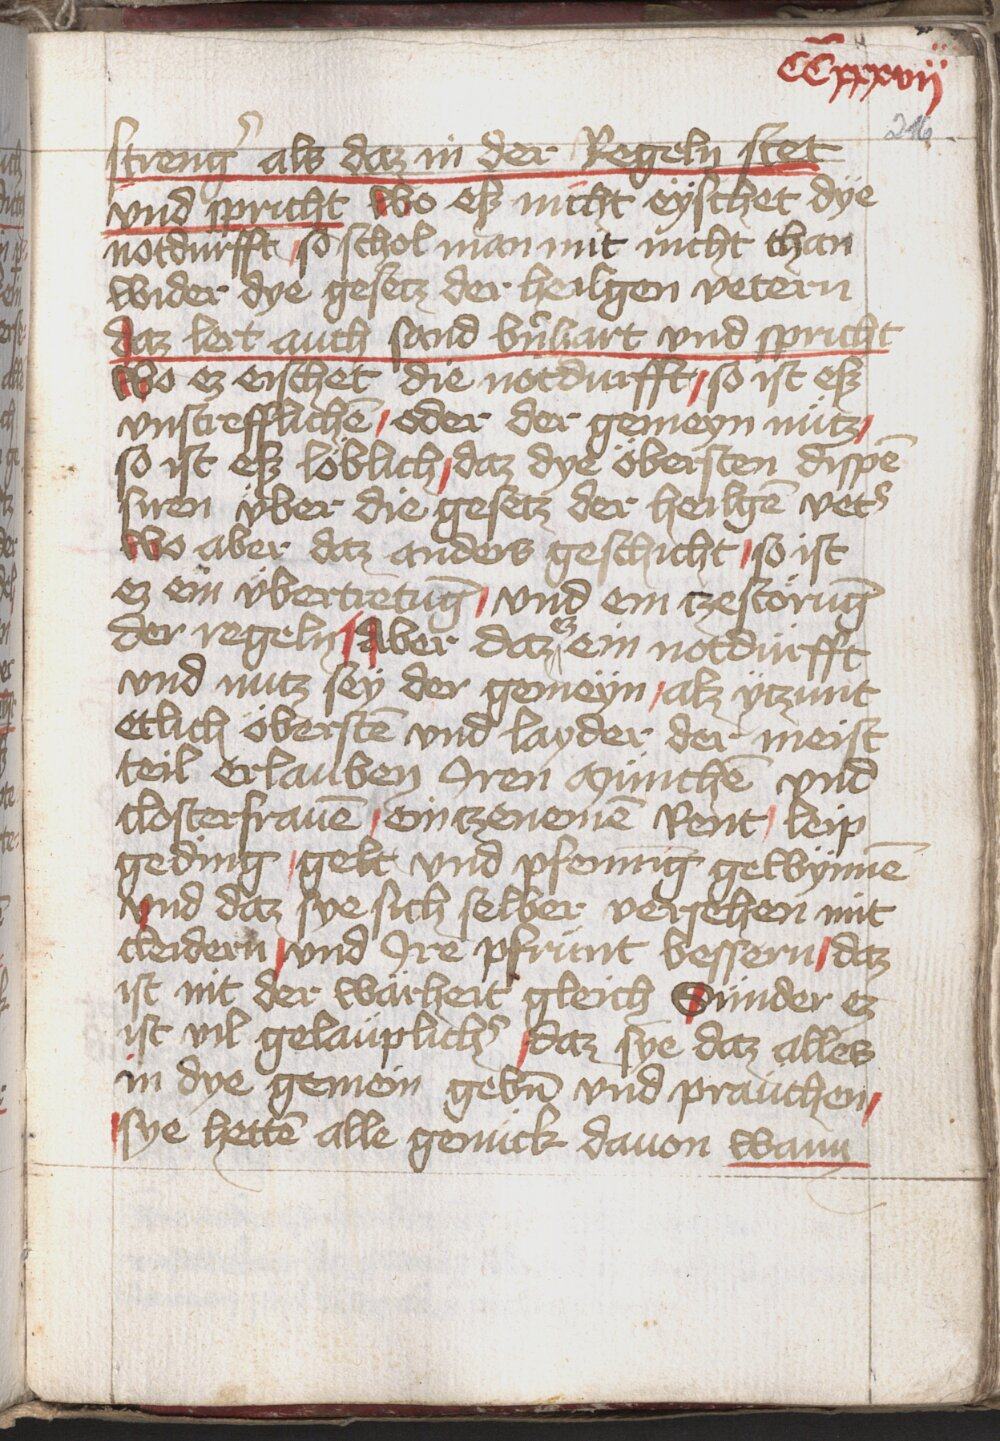 CCxxxvij
216
streng᷑ als daz in der Regeln stet
vnd spricht Wo eß nicht eyschet dye
notdurfft / so schol man mit nicht than
wider dye gesetz der heilgen vetern
daz lert auch sand bn̄hart vnd spricht
Wo ez eischet die notdurfft / so ist eß
vnstrefflichē / oder der gemeyn nütz /
so ist eß löblich / daz dye öbersten dispē
siren vber die gesetz der heilgē vet᷑
Wo aber daz anders geschicht / so ist
ez ein vbertretūg / vnd ein zestörūg
der regeln / Aber daz ez ein notdürfft
vnd nutz sey der gemeyn / alz ytzunt
etlich öberstē vnd layder der meist
teil erlauben Jren Münchē vnd
closterfrauē / eintzenemē Rent / leip
geding / gelt vnd pfenning gewynnē
vnd daz sye sich selber versehen mit
cleidern / vnd Jre pfrünt bessern / daz
ist nit der warheit gleich Sünder ez
ist vil gelauplich᷑ / daz sye daz alles
in dye gemein gebn̄ vnd prauchen /
sye hettē alle genück dauon wann